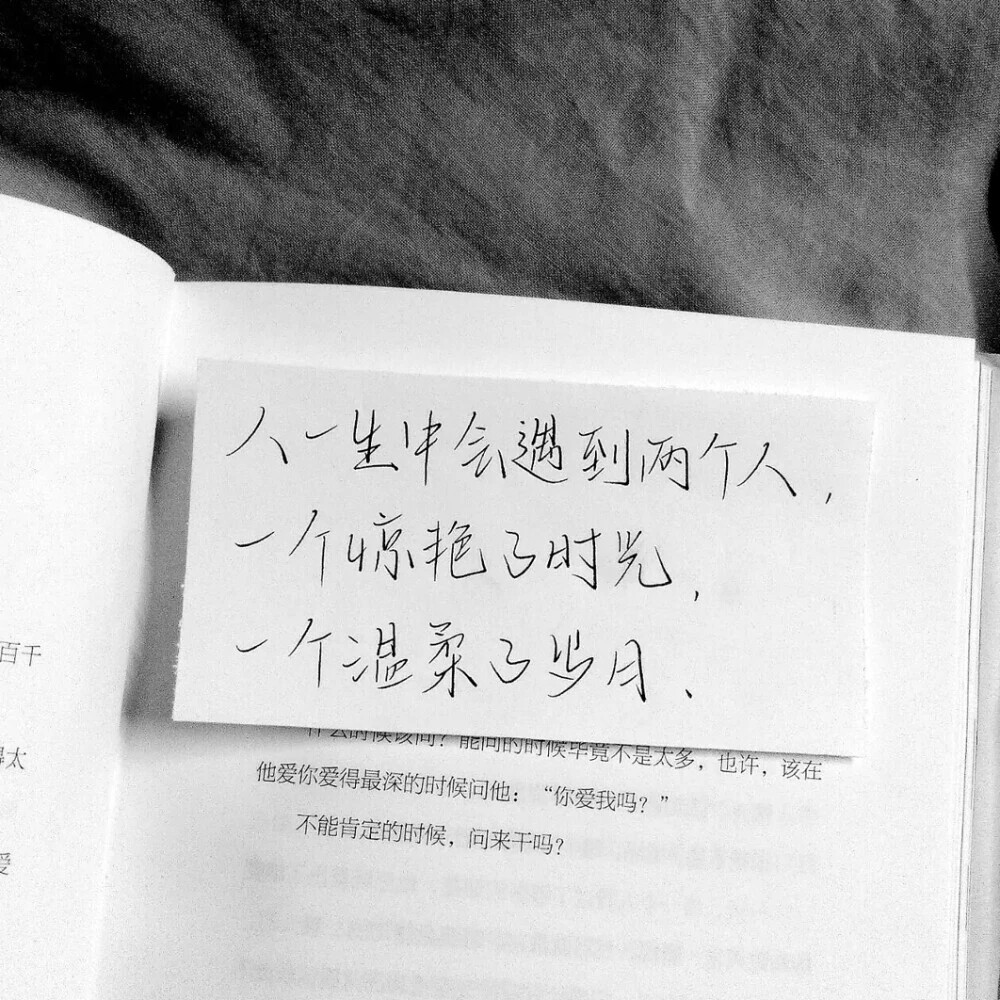 人一生中会遇到两个人，
一个惊艳了时光，
一个温柔了岁月、
什么时候该问？能问的时候毕竟不是太多，也许，该在
他爱你爱得最深的时候问他：“你爱我吗？”
不能肯定的时候，问来干吗？
百千
得太
爱